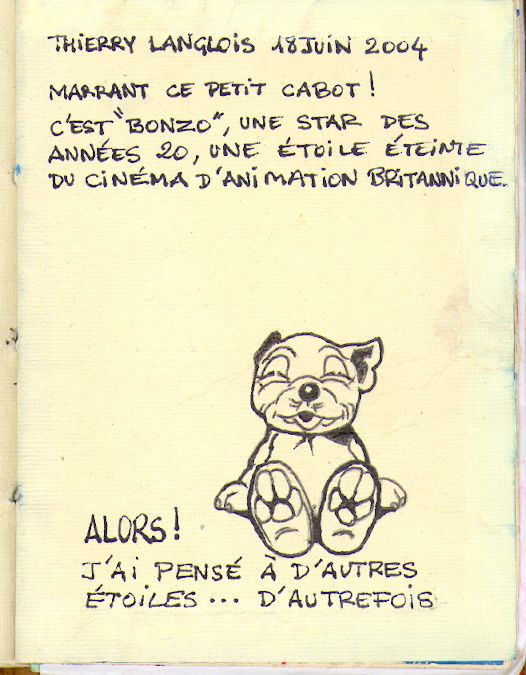 THIERRY LANGLOIS 18 JUIN 2004
MARRANT CE PETIT CABOT !
C'EST "BONZO", UNE STAR DES
ANNÉES 20, UNE ÉTOILE ÉTEINTE
DU CINÉMA D'ANIMATION BRITANNIQUE.
ALORS !
J'AI PENSÉ À D'AUTRES
ÉTOILES... D'AUTREFOIS